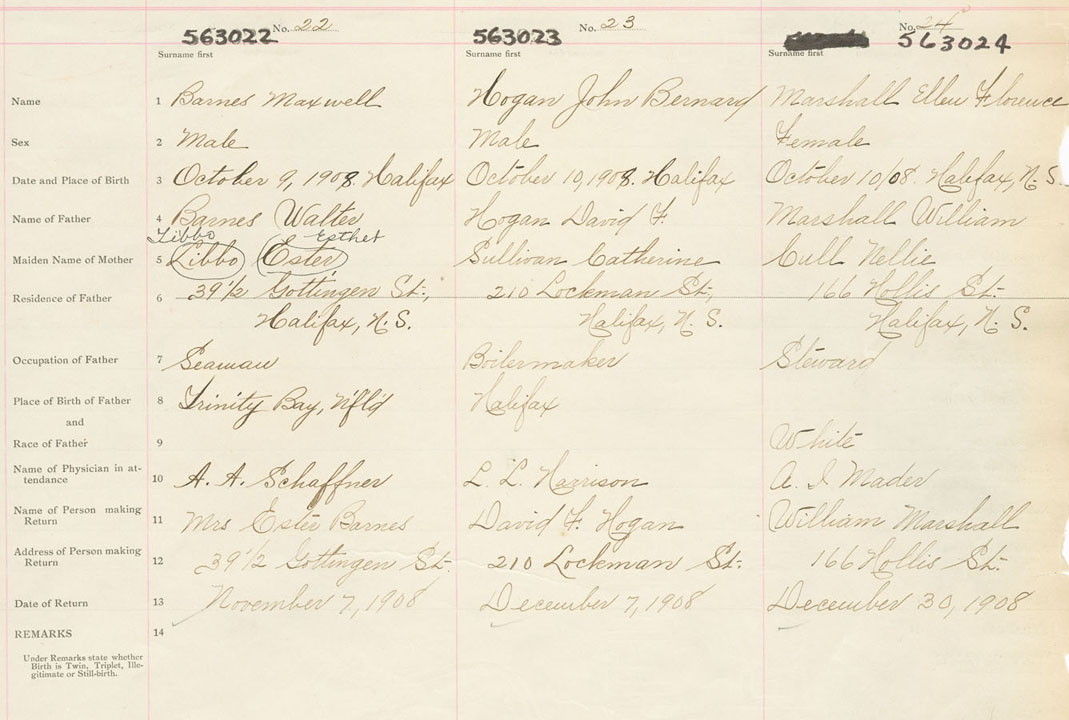 No. 22 No. 23 No. 24
563022 563023 563024
Surname first Surname first Surname first
Name 1 Barnes Maxwell Hogan John Bernard Marshall Ellen Florence
Sex 2 Male Male Female
Date and Place of Birth 3 October 9, 1908. Halifax October 10, 1908. Halifax October 10/08. Halifax, N.S.
Name of Father 4 Barnes Walter Hogan David F. Marshall William
Libbo Esther
Maiden Name of Mother 5 Libbo Ester Sullivan Catherine Cull Nellie
Residence of Father 6 39 1/2 Gottingen St., 210 Lockman St., 166 Hollis St.
Halifax, N.S. Halifax, N.S. Halifax, N.S.
Occupation of Father 7 Seaman Boilermaker Steward
Place of Birth of Father 8 Trinity Bay, Nfld Halifax
and
Race of Father 9 White
Name of Physician in at-
tendance 10 A. A. Schaffner L. L. Harrison A. I Mader
Name of Person making
Return 11 Mrs Ester Barnes David F. Hogan William Marshall
Address of Person making
Return 12 39 1/2 Gottingen St. 210 Lockman St. 166 Hollis St.
Date of Return 13 November 7, 1908 December 7, 1908 December 30, 1908
REMARKS 14
Under Remarks state whether
Birth is Twin, Triplet, Ille-
gitimate or Still-birth.